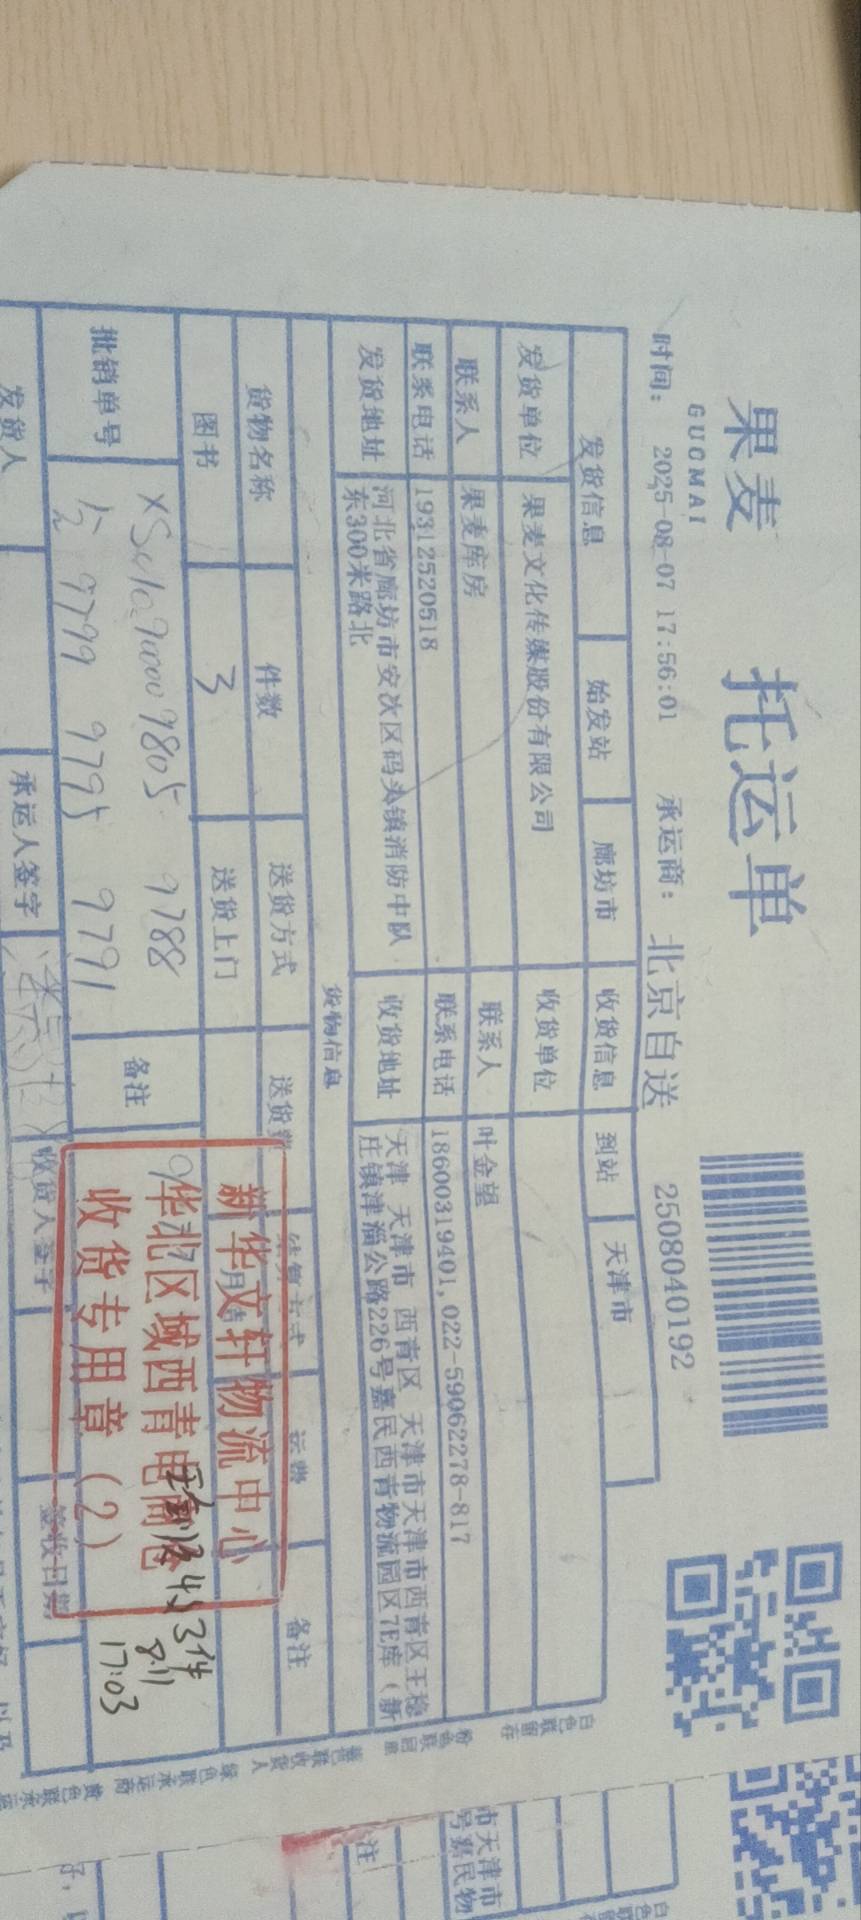 果麦 托运单
GUOMAI
时间： 2025-08-07 17:56:01 承运商： 北京自送 2508040192
发货信息 始发站 廊坊市 收货信息 到站 天津市
发货单位 果麦文化传媒股份有限公司 收货单位
联系人 果麦库房 联系人 叶金望
联系电话 19312520518 联系电话 18600319401,022-59062278-817
发货地址 河北省廊坊市安次区码头镇消防中队 收货地址 天津 天津市 西青区 天津市天津市西青区王稳
东300米路北 庄镇津淄公路226号嘉民西青物流园区7E库（新
货物信息
货物名称 件数 送货方式 送货费 结算方式 运费 备注
图书 3 送货上门
批销单号 9805 9788 备注
9799 9795 9791
新华文轩物流中心
华北区域西青电商仓
收货专用章（2）
3件
8.11
17:03
发货人 承运人签字 收货人签字 签收日期
白色联留存
粉色联回单
蓝色联收货人
绿色联承运商
黄色联承运
市天津市
号嘉民物
注